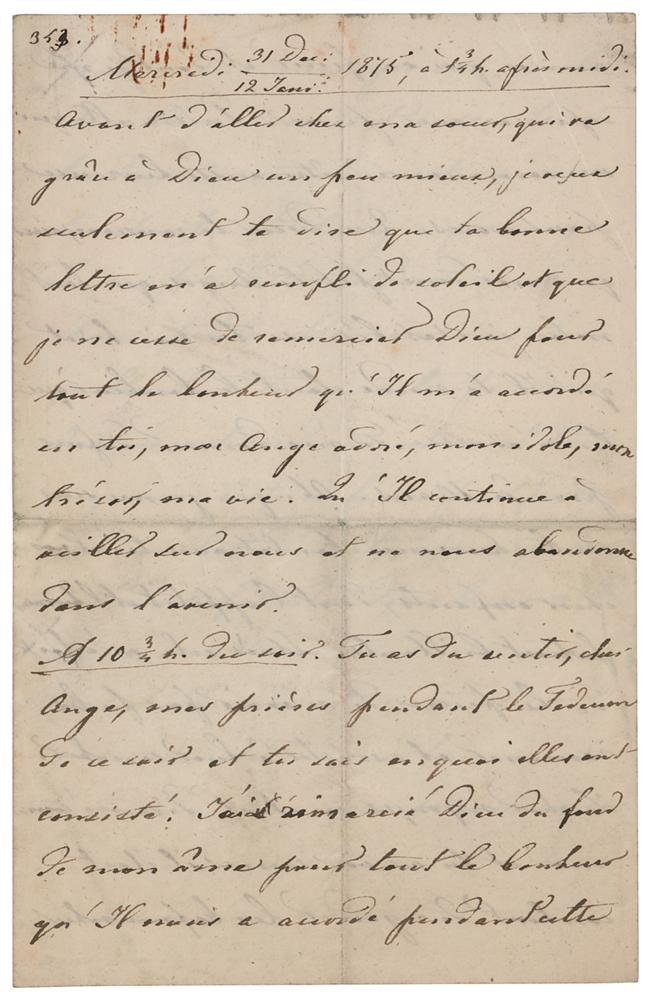 353.
Mercredi 31 Dec: / 12 Janv: 1875, à 1 3/4 h. après midi.
Avant d'aller chez ma soeur, qui va
grâce à Dieu un peu mieux, je veux
seulement te dire que ta bonne
lettre m'a rempli de soleil et que
je ne cesse de remercier Dieu pour
tout le bonheur qu'Il m'a accordé
en toi, mon Ange adoré, mon idole, mon
trésor, ma vie. Qu'Il continue à
veiller sur nous et ne nous abandonne
dans l'avenir.
A 10 3/4 h. du soir. Tu as du sentir, cher
Ange, mes prières pendant le Tedeum
de ce soir et tu sais en quoi elles ont
consisté. J'ai remercié Dieu du fond
de mon âme pour tout le bonheur
qu'Il nous a accordé pendant cette